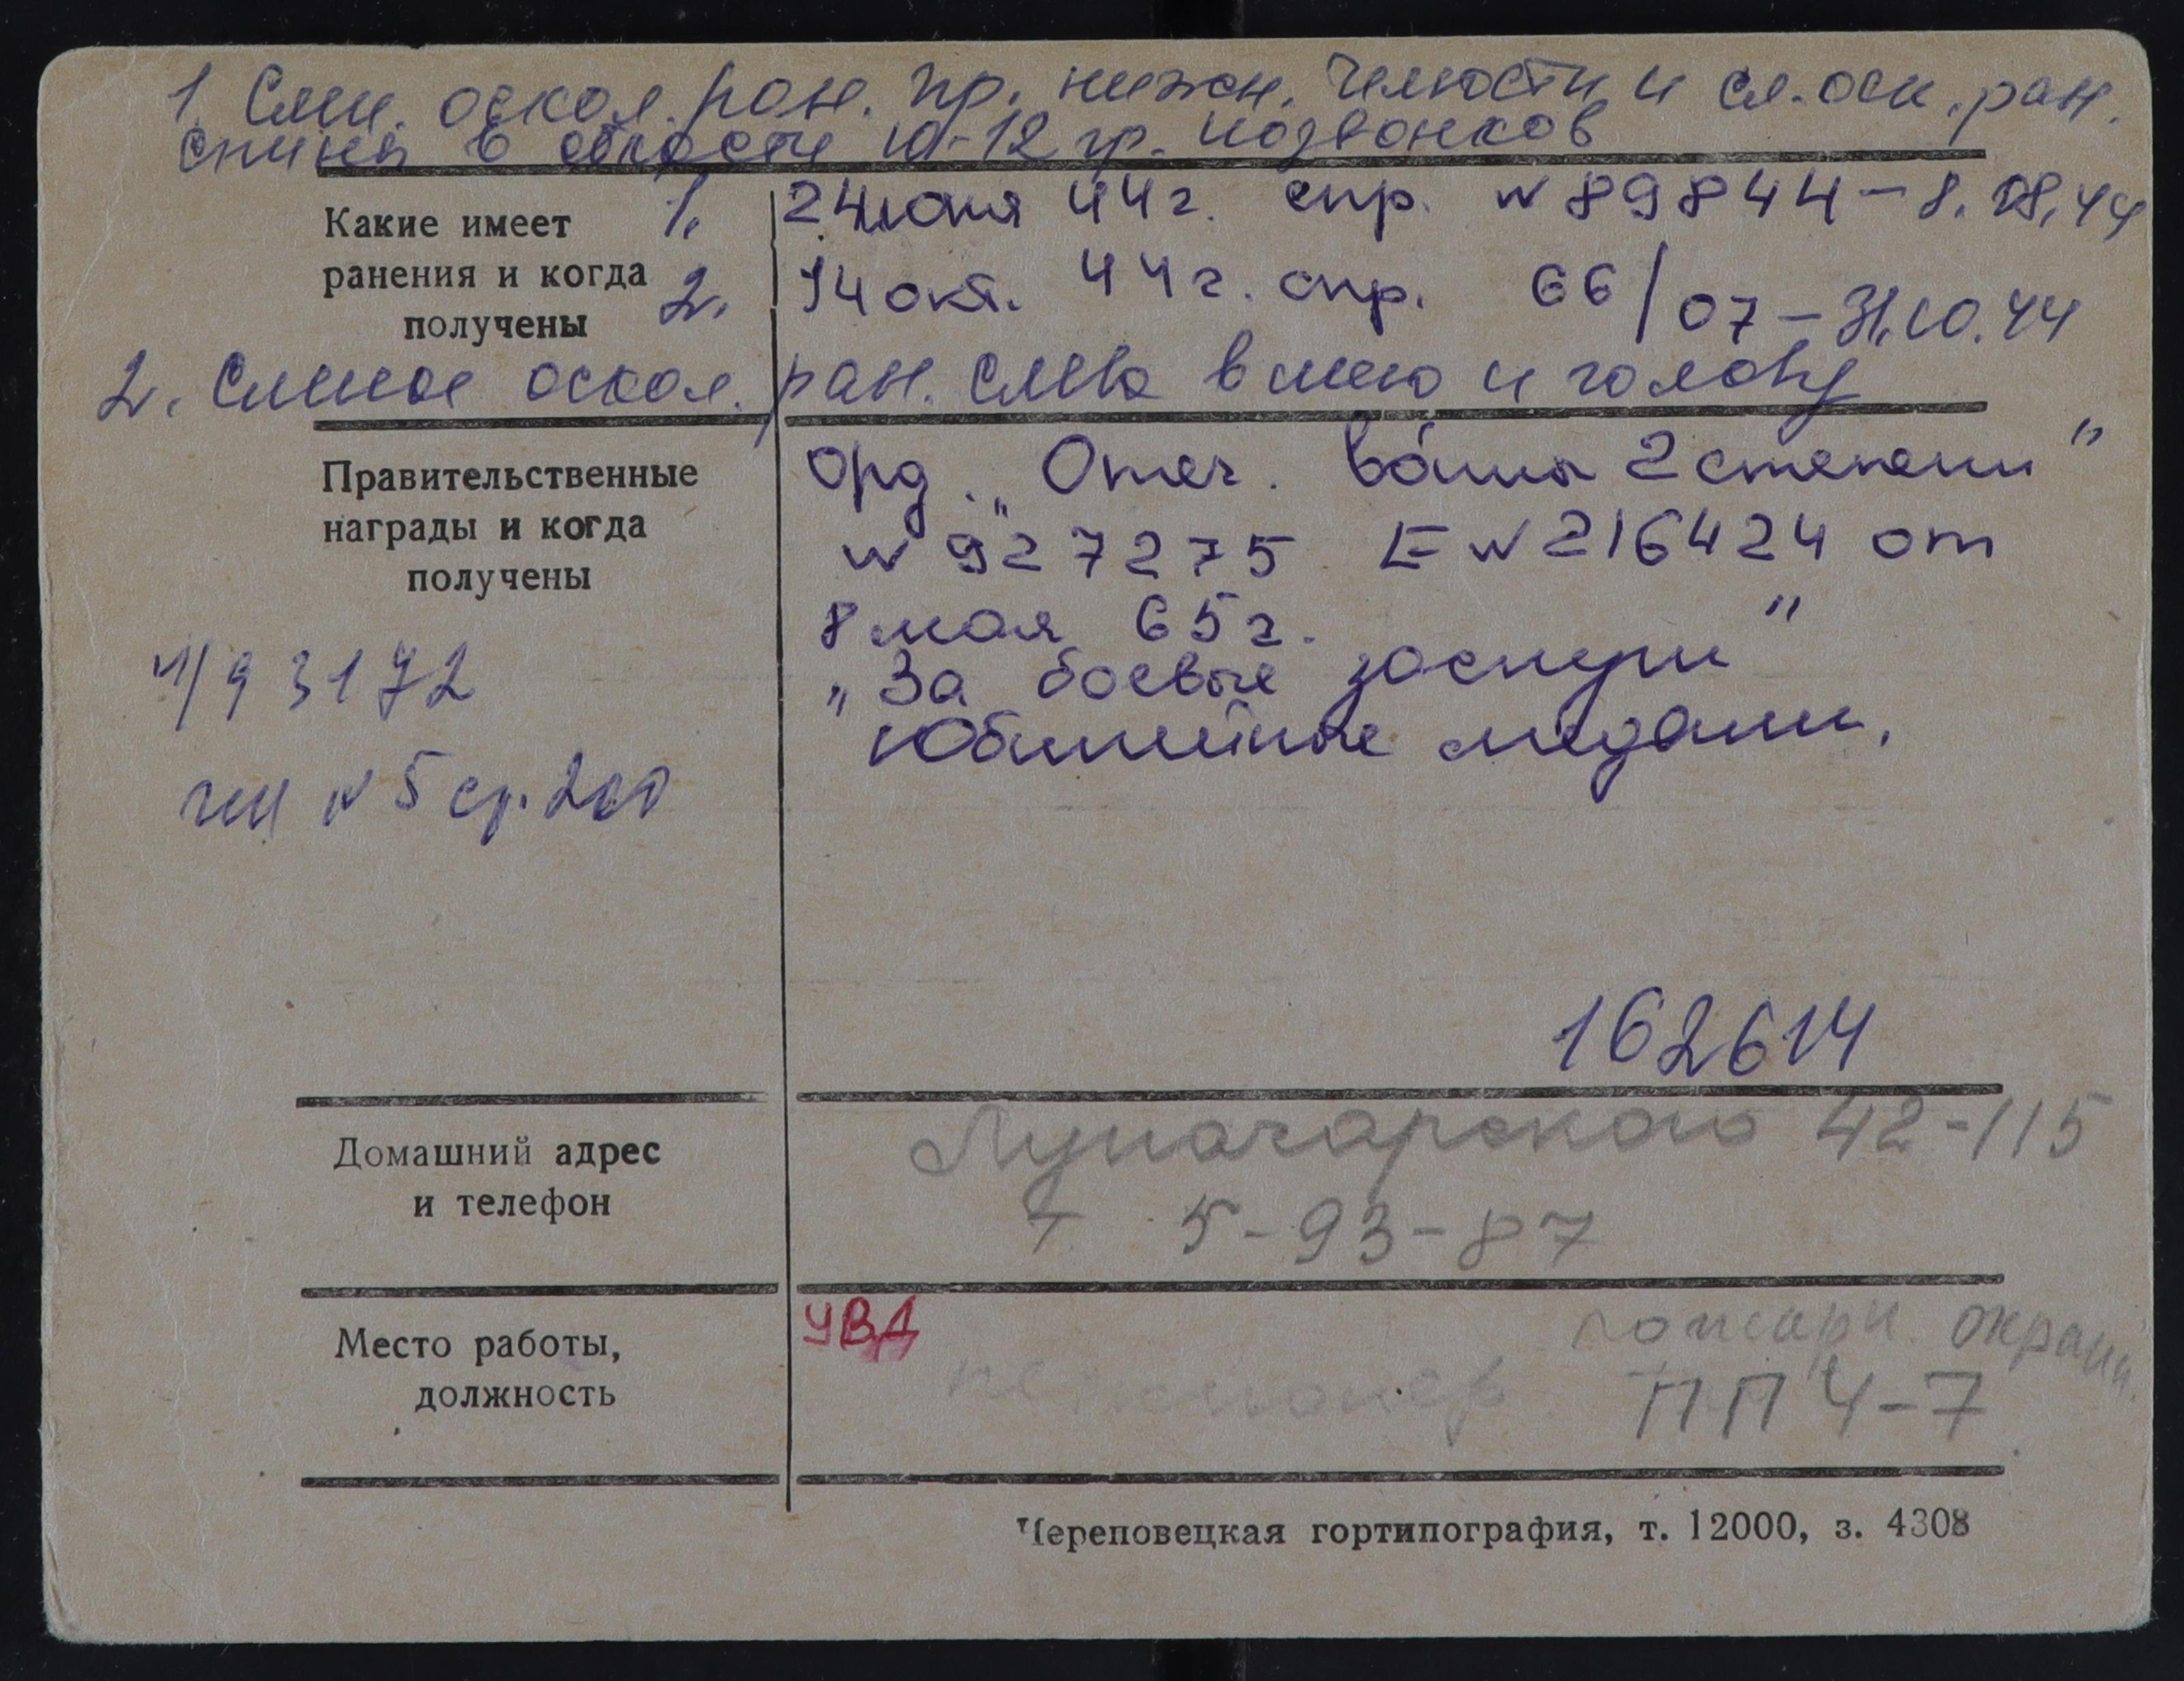 1 Слеп. оскол. ран. пр. нижн. челюсти и сл. оск. ран.
спины в области 10-12 гр. позвонков
Какие имеет
ранения и когда
получены
1. 24 июня 44 г. спр. N 89844 - 8.08.44
2. 14 окт. 44 г. спр. 66/07 - 31.10.44
2. Слепое оскол. ран. слева в шею и голову
Правительственные
награды и когда
получены
орд. „Отеч. войны 2 степени"
N 927275 Е N 216424 от
8 мая 65 г.
„За боевые заслуги"
Юбилейные медали.
93172
N 5 ср. 200
162614
Домашний адрес
и телефон
Луначарского 42-115
т 5-93-87
Место работы,
должность
УВД
пожарн. охрана
пенсионер ППЧ-7
Череповецкая гортипография, т. 12000, з. 4308